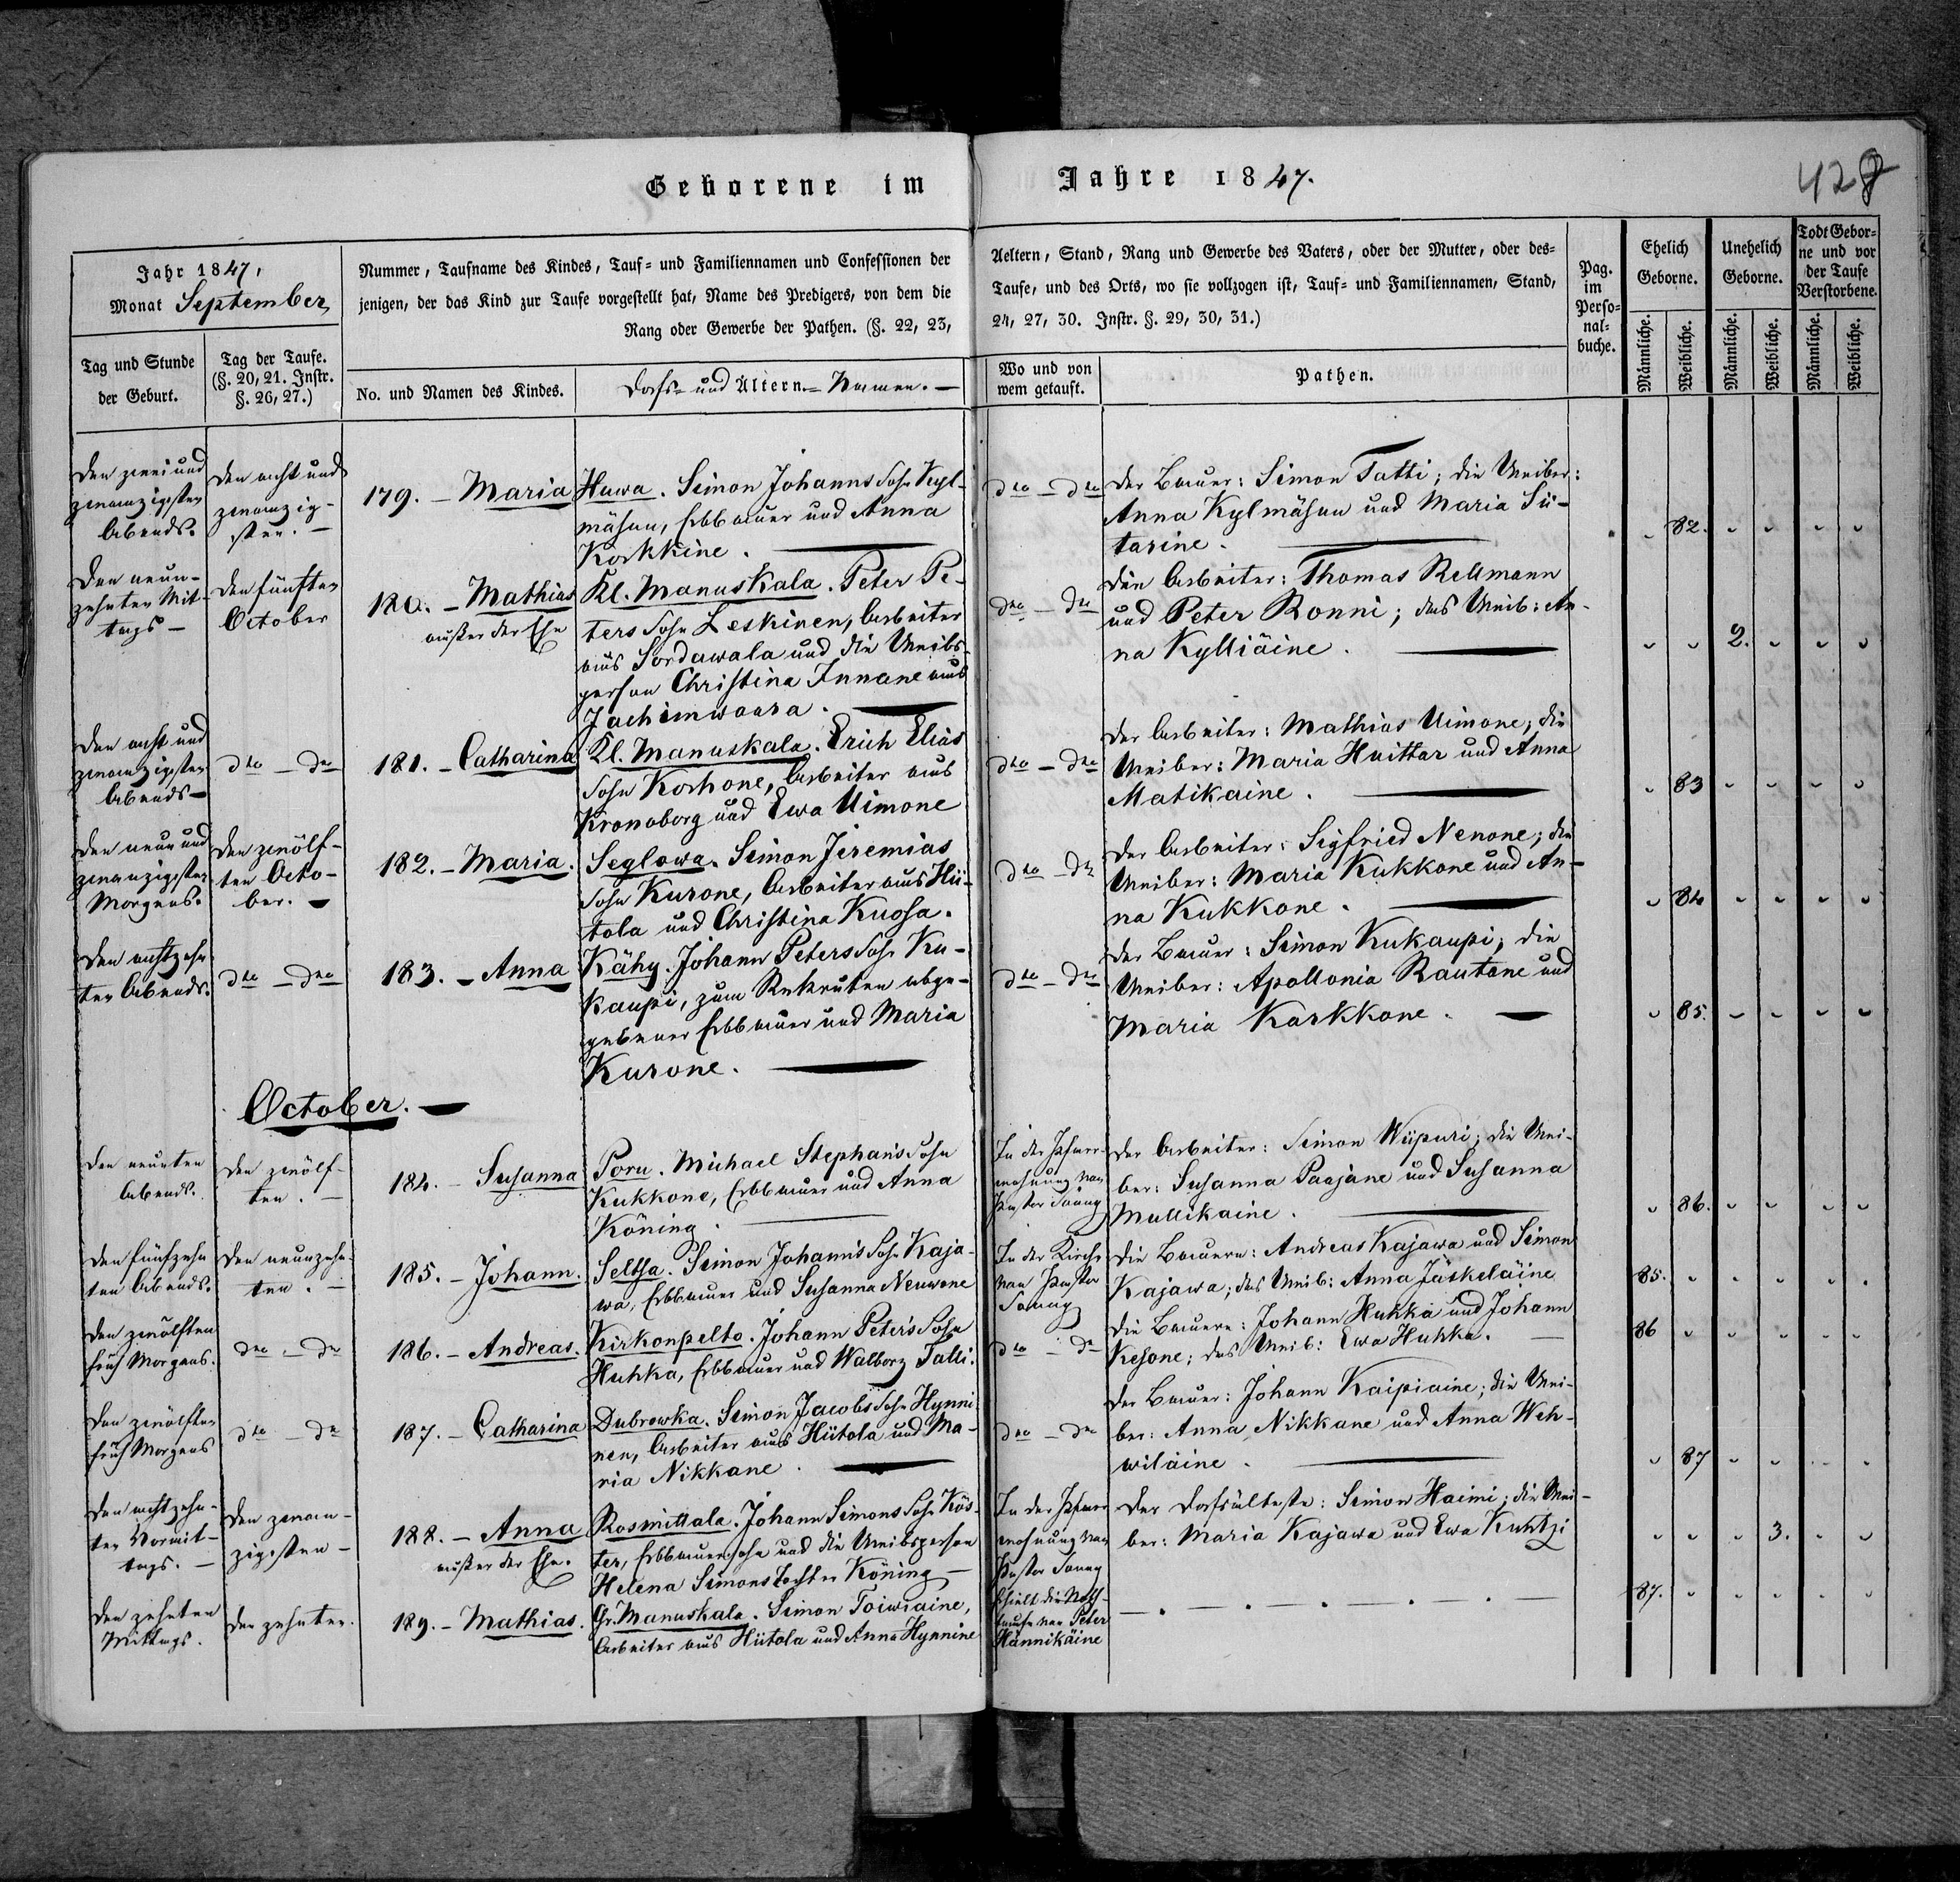 Geborene im Jahre 1847.
428
Jahr 1847,
Monat September
Tag und Stunde
der Geburt.
Tag der Taufe.
(§. 20, 21. Instr.
§. 26, 27.)
Nummer, Taufname des Kindes, Tauf- und Familiennamen und Confessionen der
jenigen, der das Kind zur Taufe vorgestellt hat, Name des Predigers, von dem die
Rang oder Gewerbe der Pathen. (§. 22, 23,
No. und Namen des Kindes.
Dorfs- und Ältern- Namen. —
Aeltern, Stand, Rang und Gewerbe des Vaters, oder der Mutter, oder des-
Taufe, und des Orts, wo sie vollzogen ist, Tauf- und Familiennamen, Stand,
24, 27, 30. Instr. §. 29, 30, 31.)
Wo und von
wem getauft.
Pathen.
Pag.
im
Perso-
nal-
buche.
Ehelich
Geborne.
Unehelich
Geborne.
Todt Gebor-
ne und vor
der Taufe
Verstorbene.
Männliche.
Weibliche.
Männliche.
Weibliche.
Männliche.
Weibliche.
Den zwei und
zwanzigsten
Abends.
Den acht und
zwanzig-
sten. —
179. — Maria
Huwa. Simon Johanns Sohn Kyl-
mäsun, Erbbauer und Anna
Korkkine. —
dto — dto
Der Bauer: Simon Tatti; die Weiber:
Anna Kylmäsun und Maria Sü-
tarine. —
82.
Den neun-
zehnten Mit-
tags —
Den fünften
October
180. — Mathias
außer der Ehe
Kl. Manuskala. Peter Pe-
ters Sohn Leskinen, Arbeiter
aus Sordawala und die Weibs-
person Christina Innane aus
Jachimwaara. —
dto — dto
Die Arbeiter: Thomas Rellmann
und Peter Ronni; das Weib: An-
na Kylliäine. —
2.
Den acht und
zwanzigsten
Abends —
dto — dto
181. — Catharina
Kl. Manuskala. Erich Elias
Sohn Korhone, Arbeiter aus
Kronoborg und Ewa Uimone
dto — dto
Der Arbeiter: Mathias Uimone; die
Weiber: Maria Huittar und Anna
Matikaine. —
83
Den neun und
zwanzigsten
Morgens.
Den zwölf-
ten Octo-
ber. —
182. — Maria.
Seglowa. Simon Jeremias
Sohn Kurone, Arbeiter aus Hii-
tola und Christina Kuosa.
dto — dto
Der Arbeiter: Sigfried Nenone; die
Weiber: Maria Kukkone und An-
na Kukkone. —
84
Den achtzehn
ten Abends.
dto — dto
183. — Anna
Kähy. Johann Peters Sohn Ku-
kaupi, zum Rekruten abge-
gebener Erbbauer und Maria
Kurone. —
dto — dto
Der Bauer: Simon Kukaupi; die
Weiber: Apollonia Rautane und
Maria Karkkone. —
85.
October. —
Den neunten
Abends.
Den zwölf-
ten. —
184. — Susanna
Poru. Michael Stephans Sohn
Kukkone, Erbbauer und Anna
Köning. —
In der Pfarr-
wohnung von
Pastor Sauny
Der Arbeiter: Simon Wiipuri; die Wei-
ber: Susanna Paajane und Susanna
Mullikaine. —
86.
Den fünfzehn
ten Abends.
Den neunzehn-
ten. —
185. — Johann.
Seltsa. Simon Johanns Sohn Kaja-
wa, Erbbauer und Susanna Neuwone
In der Kirche
von Pastor
Sauny
Die Bauern: Andreas Kajawa und Simon
Kajawa; das Weib: Anna Jäskeläine
85.
Den zwölften
früh Morgens.
dto — dto
186. — Andreas.
Kirkonpelto. Johann Peters Sohn
Huhka, Erbbauer und Walborg Talli.
dto — dto
Die Bauern: Johann Huhka und Johann
Kesone; das Weib: Ewa Huhka. —
86
Den zwölften
früh Morgens
dto — dto
187. — Catharina
Dubrowka. Simon Jacobs Sohn Hynni
nen, Arbeiter aus Hiitola und Ma-
ria Nikkane. —
dto — dto
Der Bauer: Johann Kaipiaine; die Wei-
ber: Anna Nikkane und Anna Weh-
wiläine. —
87
Den achtzehn-
ten Vormit-
tags. —
Den zwan-
zigsten —
188. — Anna
außer der Ehe.
Rosmittala. Johann Simons Sohn Kös-
ter, Erbbauersohn und die Weibsperson
Helena Simons Tochter Köning —
In der Pfarr
wohnung von
Pastor Sauny
Der Dorfsälteste: Simon Haimi; die Wei-
ber: Maria Kajawa und Ewa Kuhtzi
3.
Den zehnten
Mittags.
Den zehnten.
189. — Mathias.
Gr. Manuskala. Simon Toiwiaine,
Arbeiter aus Hiitola und Anna Hynnine
Erhielt die Noth-
taufe von Peter
Hännikäine
87.